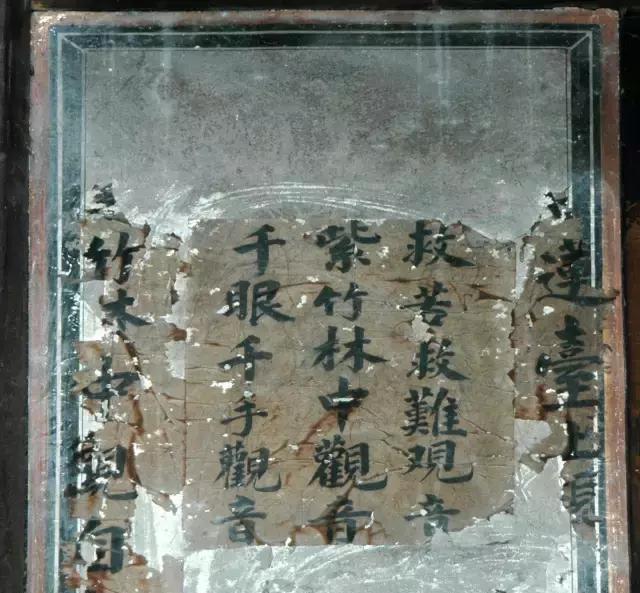 蓮臺上
救苦救難覌音
紫竹林中觀音
千眼千手觀音
竹林中覌自